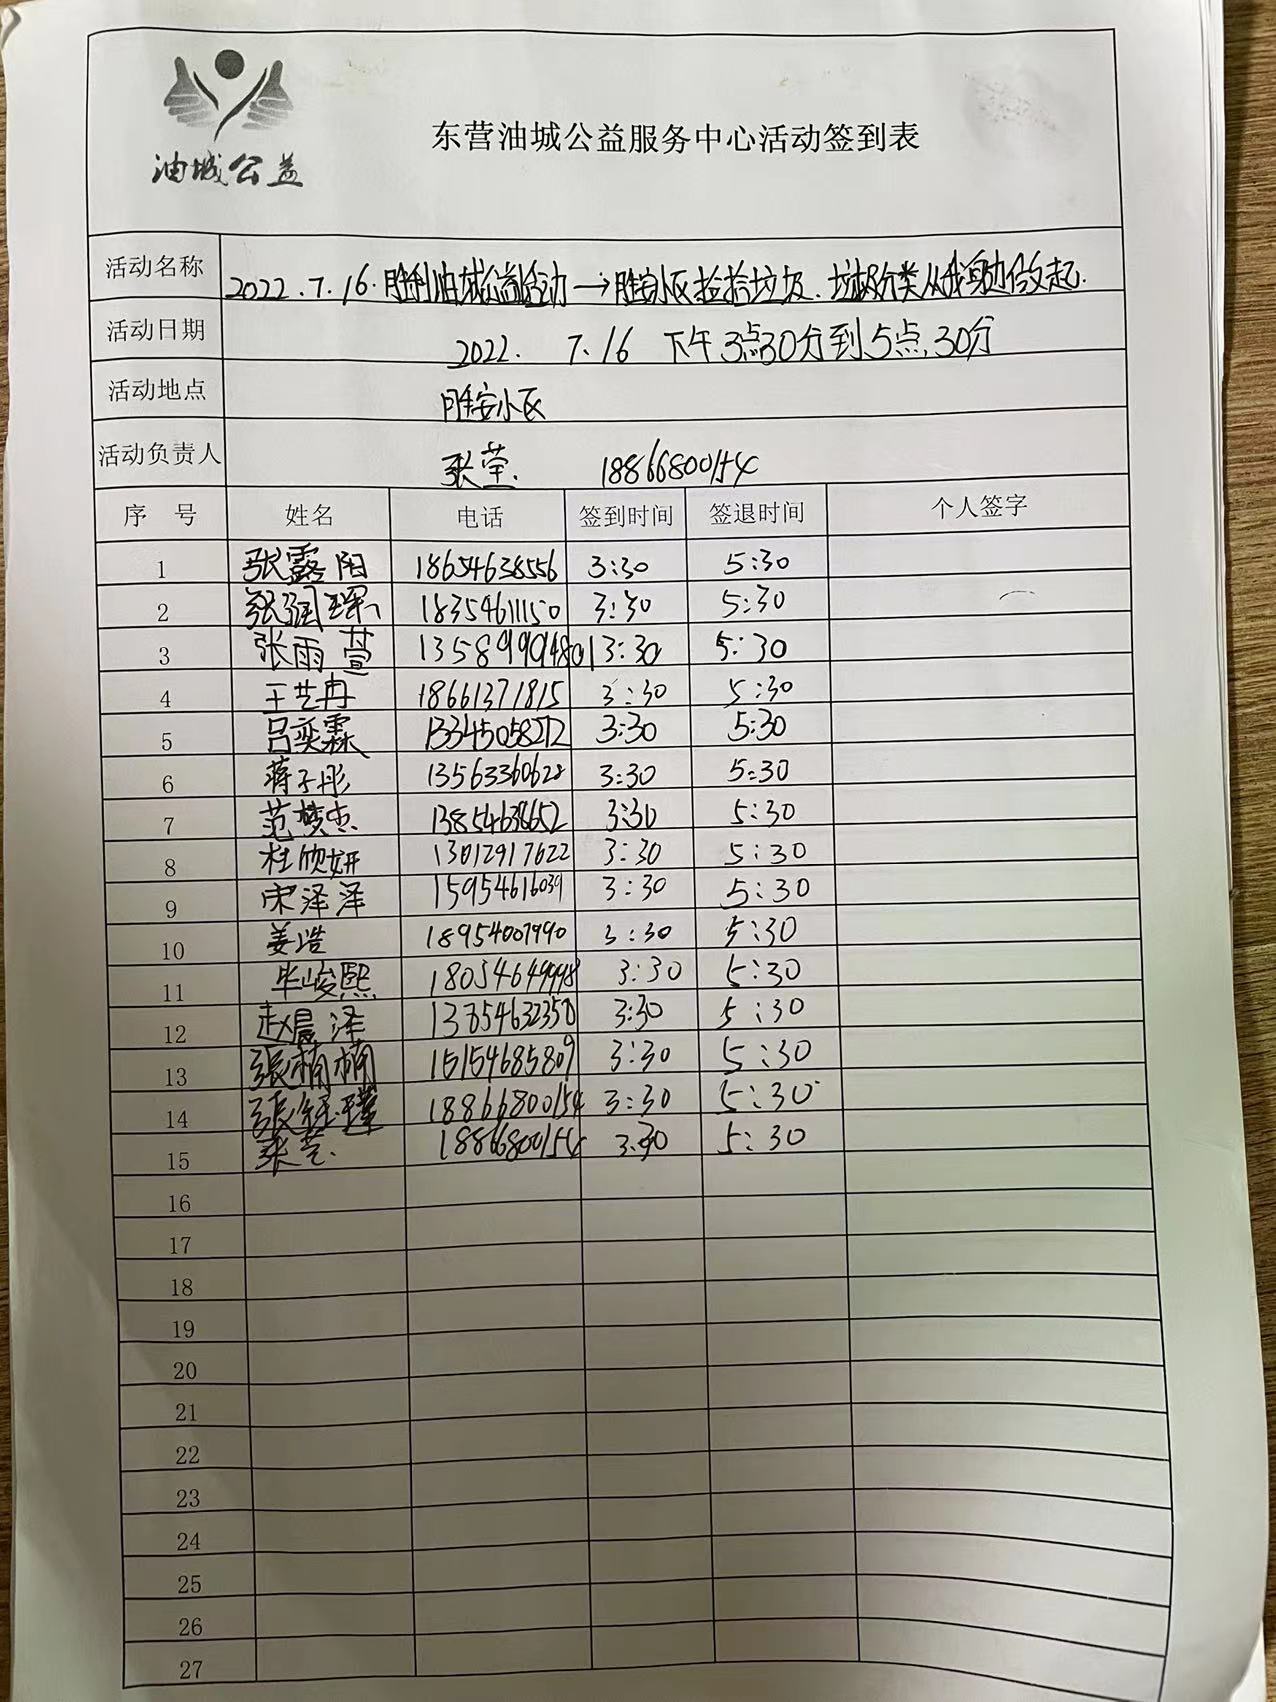 油城公益
东营油城公益服务中心活动签到表
活动名称 2022.7.16.胜利油城公益活动→胜安小区捡拾垃圾.垃圾分类从我身边做起.
活动日期 2022. 7.16 下午3点30分到5点30分
活动地点 胜安小区
活动负责人 张莹. 18866800154
序号 姓名 电话 签到时间 签退时间 个人签字
1 张露阳 18654638556 3:30 5:30
2 张润琛 18354611150 3:30 5:30
3 张雨萱 13589990480 3:30 5:30
4 王艺冉 18661371815 3:30 5:30
5 吕奕霖 13345058272 3:30 5:30
6 蒋子彤 13563360622 3:30 5:30
7 范 13854638652 3:30 5:30
8 杜欣妍 13012917622 3:30 5:30
9 宋泽泽 15954616039 3:30 5:30
10 姜浩 18954007990 3:30 5:30
11 毕峻熙 18054649998 3:30 5:30
12 赵晨泽 13854632358 3:30 5:30
13 張楠楠 15154685809 3:30 5:30
14 張鈺瑾 18866800154 3:30 5:30
15 张莹. 18866800154 3:30 5:30
16
17
18
19
20
21
22
23
24
25
26
27